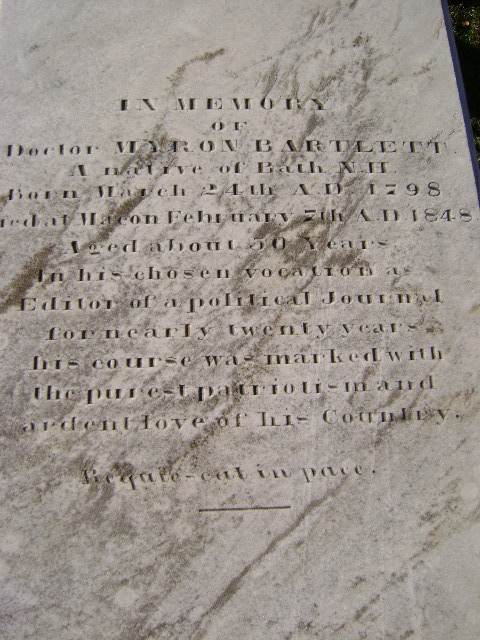 IN MEMORY
OF
Doctor MYRON BARTLETT.
A native of Bath N.H.
Born March 24th A.D. 1798
ied at Macon February 7th A.D. 1848.
Aged about 50 Years.
In his chosen vocation as
Editor of a political Journal
for nearly twenty years
his course was marked with
the purest patriotism and
ardent love of his Country.
Requies-cat in pace.